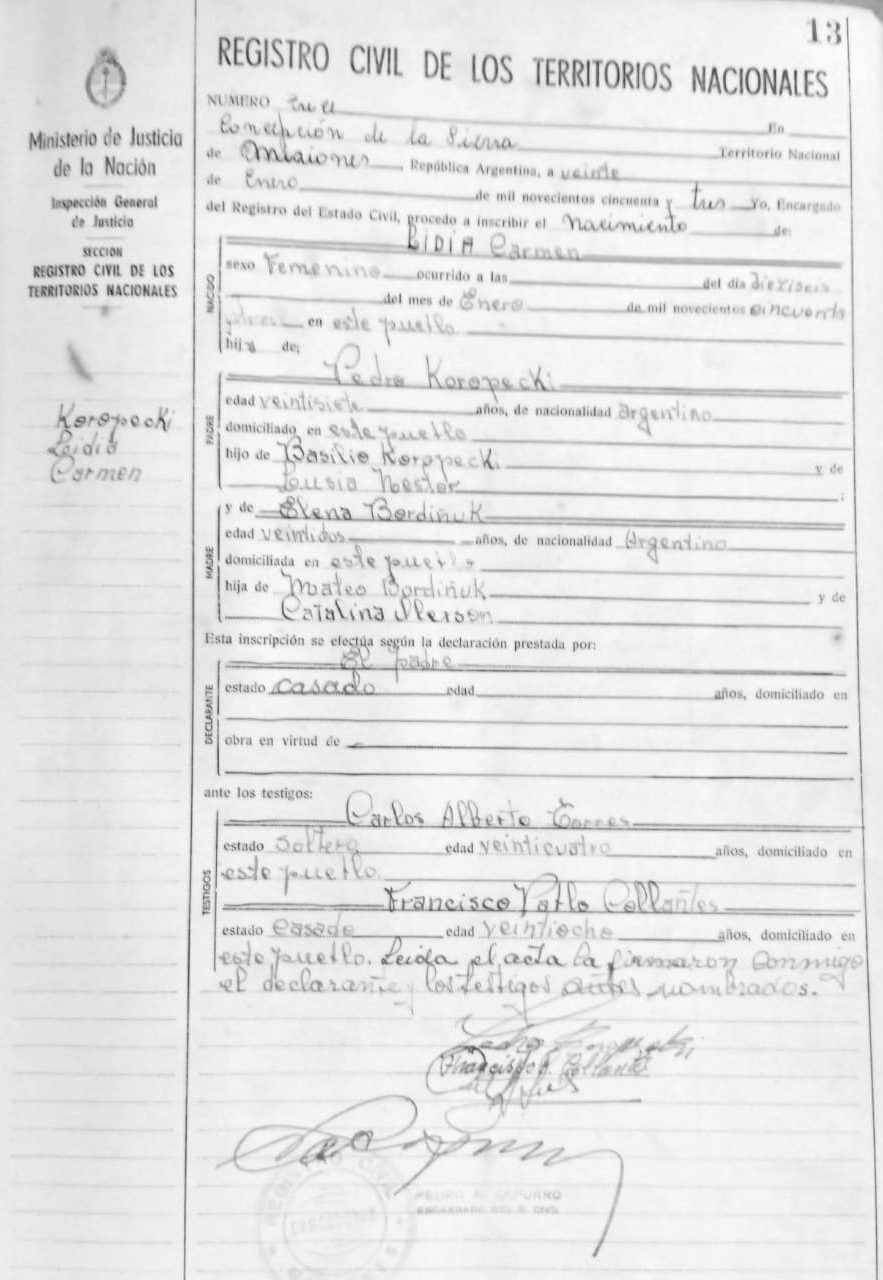 13
REGISTRO CIVIL DE LOS TERRITORIOS NACIONALES
Ministerio de Justicia
de la Nación
Inspección General
de Justicia
SECCION
REGISTRO CIVIL DE LOS
TERRITORIOS NACIONALES
Koropecki
Leidia
Carmen
NUMERO En
Concepción de la Sierra Territorio Nacional
de Misiones, República Argentina, a veinte
de Enero de mil novecientos cincuenta y tres Yo, Encargado
del Registro del Estado Civil, procedo a inscribir el nacimiento de:
NACIDO
LIDIA Carmen
sexo Femenino ocurrido a las del día dieziseis
del mes de Enero de mil novecientos cincuenta
en este pueblo.
hija de:
PADRE
Pedro Koropecki
edad veintisiete años, de nacionalidad argentino
domiciliado en este pueblo
hijo de Basilio Koropecki y de
Lusia Nestor ;
MADRE
y de Elena Bordiñuk
edad veintidos años, de nacionalidad Argentina
domiciliada en este pueblo
hija de Mateo Bordiñuk y de
Catalina
Esta inscripción se efectúa según la declaración prestada por:
DECLARANTE
El padre
estado casado edad años, domiciliado en
obra en virtud de
ante los testigos:
TESTIGOS
Carlos Alberto Torres
estado Soltero edad veinticuatro años, domiciliado en
este pueblo.
Francisco Pablo Collantes
estado Casado edad veintiocho años, domiciliado en
este pueblo. Leida el acta la firmaron conmigo
el declarante y los testigos antes nombrados.
Pedro Koropecki
Francisco P. Collantes
REGISTRO CIVIL
PEDRO A. CAPURRO
ENCARGADO REG. E. CIVIL